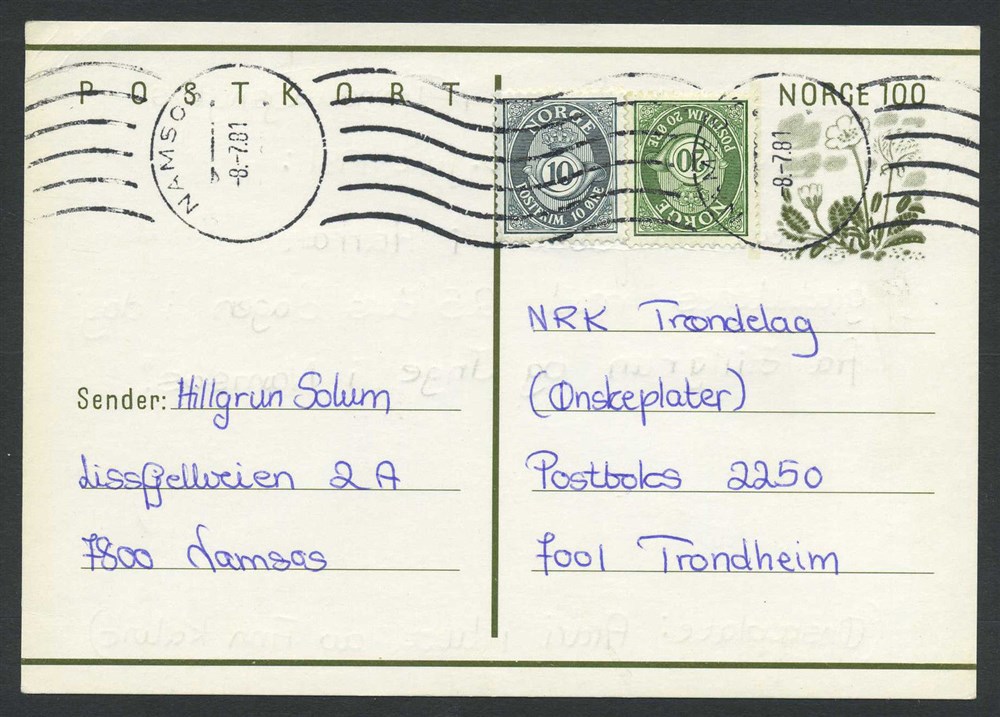 POSTKORT
NORGE 100
NAMSOS
-8.-7.81
NORGE
10
POSTFRIM 10 ØRE
POSTFRIM 20 ØRE
20
NORGE
-8.-7.81
NRK Trøndelag
(Ønskeplater)
Postboks 2250
7001 Trondheim
Sender: Hillgrun Solum
Lissfjellveien 2 A
7800 Namsos